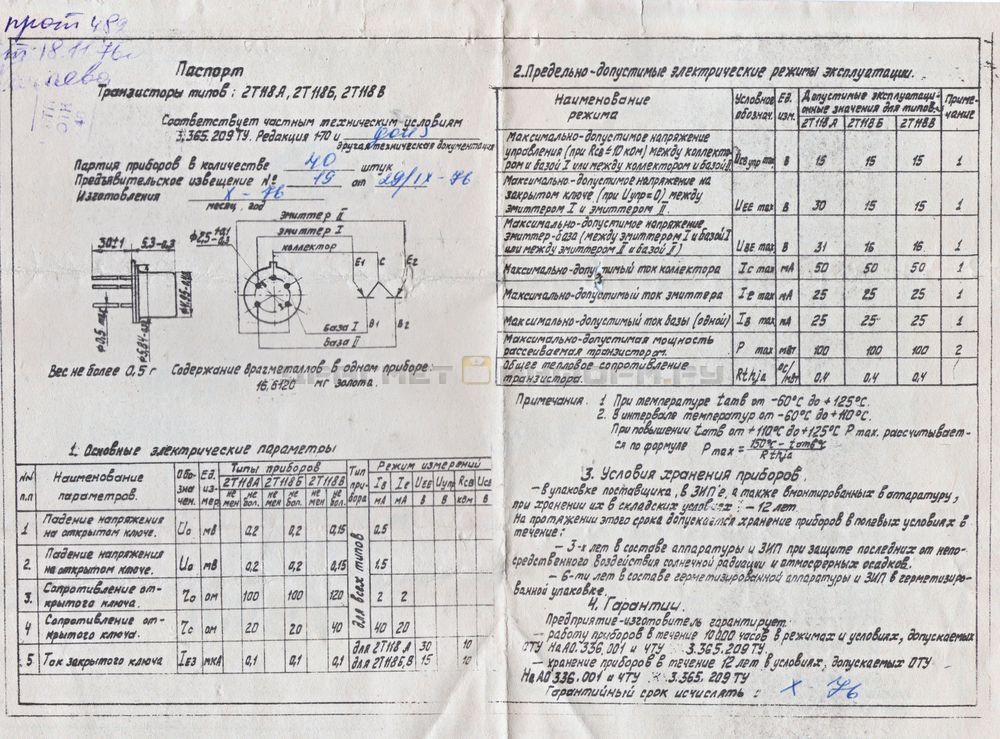 прот 489
18.11.76г
Паспорт
Транзисторы типов: 2Т118А, 2Т118Б, 2Т118В
Соответствует частным техническим условиям
3.365.209 ТУ. Редакция 1-70 и
другая техническая документация
Партия приборов в количестве 40 штук
Предъявительское извещение № 19 от 29/IX-76
Изготовления X - 76
месяц, год
эмиттер II
эмиттер I
коллектор
30±1
5,3-0,3
E1
C
E2
База I
База II
B1
B2
Вес не более 0,5 г
Содержание драгметаллов в одном приборе:
16,6120 мг золота.
1. Основные электрические параметры
№№ п.п
Наименование параметров.
Обозначен.
Ед. измер.
Типы приборов
Тип прибора
Режим измерений
2Т118А 2Т118Б 2Т118В
не мен не бол. не мен не бол. не мен не бол.
IB Ie UEE Uупр RCB UCB
мА мА В В ком В
1 Падение напряжения на открытом ключе. Uo мВ 0,2 0,2 0,15 0,5
2. Падение напряжения на открытом ключе. Uo мВ 0,2 0,2 0,15 1,5
3. Сопротивление открытого ключа. ро ом 100 100 120 2 2
4 Сопротивление открытого ключа. ом 20 20 40 40 20
для всех типов
5 Ток закрытого ключа IEЗ мкА 0,1 0,1 0,1
для 2Т118А 30 10
для 2Т118Б,В 15 10
2. Предельно-допустимые электрические режимы эксплуатации.
Наименование режима
Условное обознач.
Ед. изм.
Допустимые эксплуатационные значения для типов
Примечание
2Т118А 2Т118Б 2Т118В
Максимально-допустимое напряжение
управления (при RCB ≤ 10 ком) между коллектором и базой I или между коллектором и базой II. UCB упр max. В 15 15 15 1
Максимально-допустимое напряжение на
закрытом ключе (при Uупр=0) между
эмиттером I и эмиттером II. UEE max В 30 15 15 1
Максимально-допустимое напряжение
эмиттер-база (между эмиттером I и базой I
или между эмиттером II и базой II) UBE max В 31 16 16 1
Максимально-допустимый ток коллектора Ic max мА 50 50 50 1
Максимально-допустимый ток эмиттера Ie max мА 25 25 25 1
Максимально-допустимый ток базы (одной) IB max мА 25 25 25 1
Максимально-допустимая мощность
рассеиваемая транзистором. P max мвт 100 100 100 2
Общее тепловое сопротивление
транзистора. Rthja °C/мвт 0,4 0,4 0,4
Примечания: 1. При температуре tamb от -60°С до +125°С.
2. В интервале температур от -60°С до +110°С.
При повышении tamb от +110°С до +125°С P max. рассчитывает-
ся по формуле P max = 150°С - tamb°С / Rthja
3. Условия хранения приборов.
— в упаковке поставщика, в ЗИП'е, а также вмонтированных в аппаратуру,
при хранении их в складских условиях — 12 лет.
На протяжении этого срока допускается хранение приборов в полевых условиях в
течение:
— 3-х лет в составе аппаратуры и ЗИП при защите последних от непо-
средственного воздействия солнечной радиации и атмосферных осадков.
— 6-ти лет в составе герметизированной аппаратуры и ЗИП в герметизиро-
ванной упаковке.
4. Гарантии.
Предприятие-изготовитель гарантирует:
— работу приборов в течение 10000 часов в режимах и условиях, допускаемых
ОТУ НаА0.336.001 и ЧТУ 3.365.209 ТУ.
— хранение приборов в течение 12 лет в условиях, допускаемых ОТУ
НаА0 336.001 и ЧТУ 3.365.209 ТУ
Гарантийный срок исчислять с X - 76